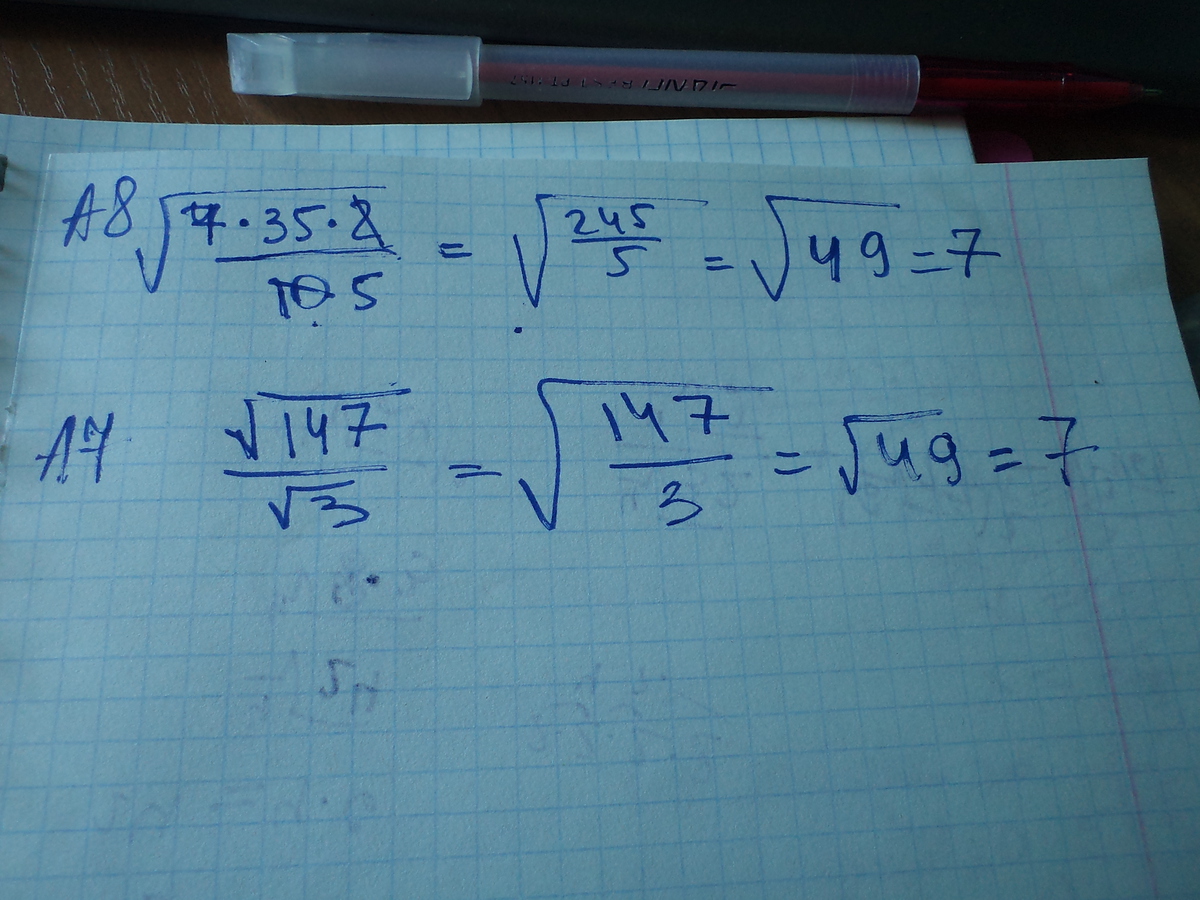 А8 √(7·35·2 / 10 5) = √(245/5) = √49 = 7
А7 √147/√3 = √(147/3) = √49 = 7